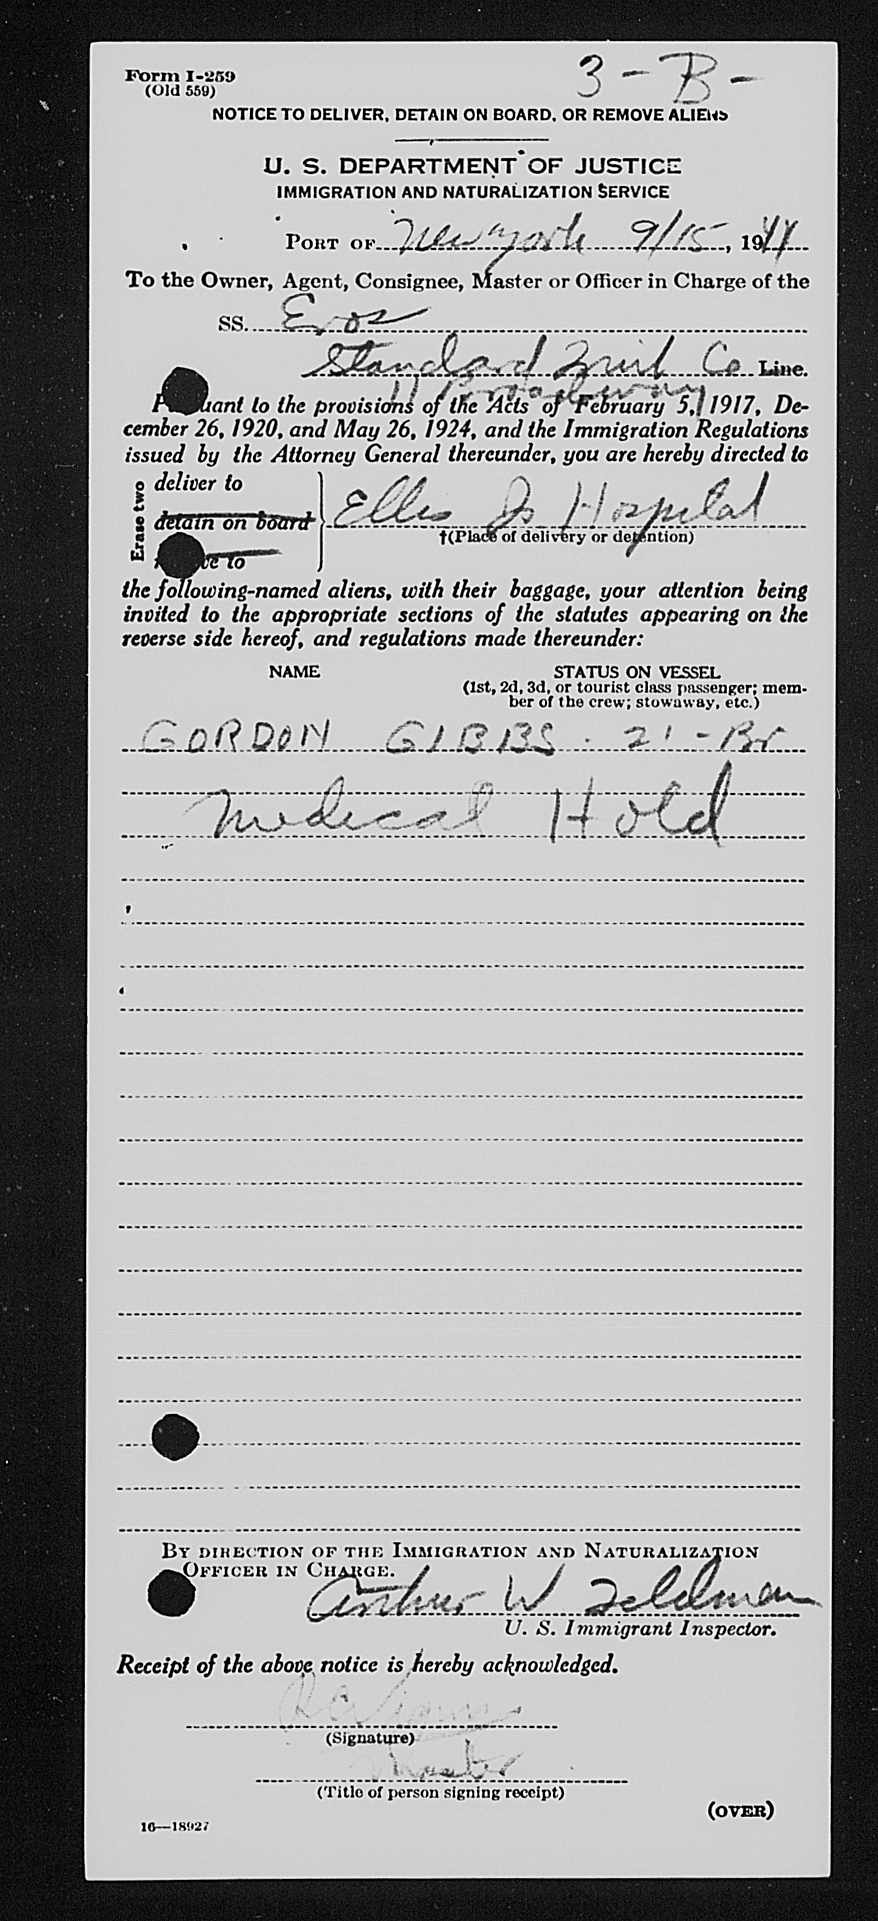 Form I-259
(Old 559)
3 - B -
NOTICE TO DELIVER, DETAIN ON BOARD, OR REMOVE ALIENS
U. S. DEPARTMENT OF JUSTICE
IMMIGRATION AND NATURALIZATION SERVICE
PORT OF New York 9/15, 1944
To the Owner, Agent, Consignee, Master or Officer in Charge of the
SS. Eros
Standard Fruit Co Line.
11 Broadway
Pursuant to the provisions of the Acts of February 5, 1917, De-
cember 26, 1920, and May 26, 1924, and the Immigration Regulations
issued by the Attorney General thereunder, you are hereby directed to
Erase two
deliver to
detain on board
remove to
Ellis Is Hospital
†(Place of delivery or detention)
the following-named aliens, with their baggage, your attention being
invited to the appropriate sections of the statutes appearing on the
reverse side hereof, and regulations made thereunder:
NAME STATUS ON VESSEL
(1st, 2d, 3d, or tourist class passenger; mem-
ber of the crew; stowaway, etc.)
GORDON GIBBS - 21 - Br
Medical Hold
BY DIRECTION OF THE IMMIGRATION AND NATURALIZATION
OFFICER IN CHARGE.
Arthur W Feldman
U. S. Immigrant Inspector.
Receipt of the above notice is hereby acknowledged.
(Signature)
Master
(Title of person signing receipt)
(OVER)
16—18927